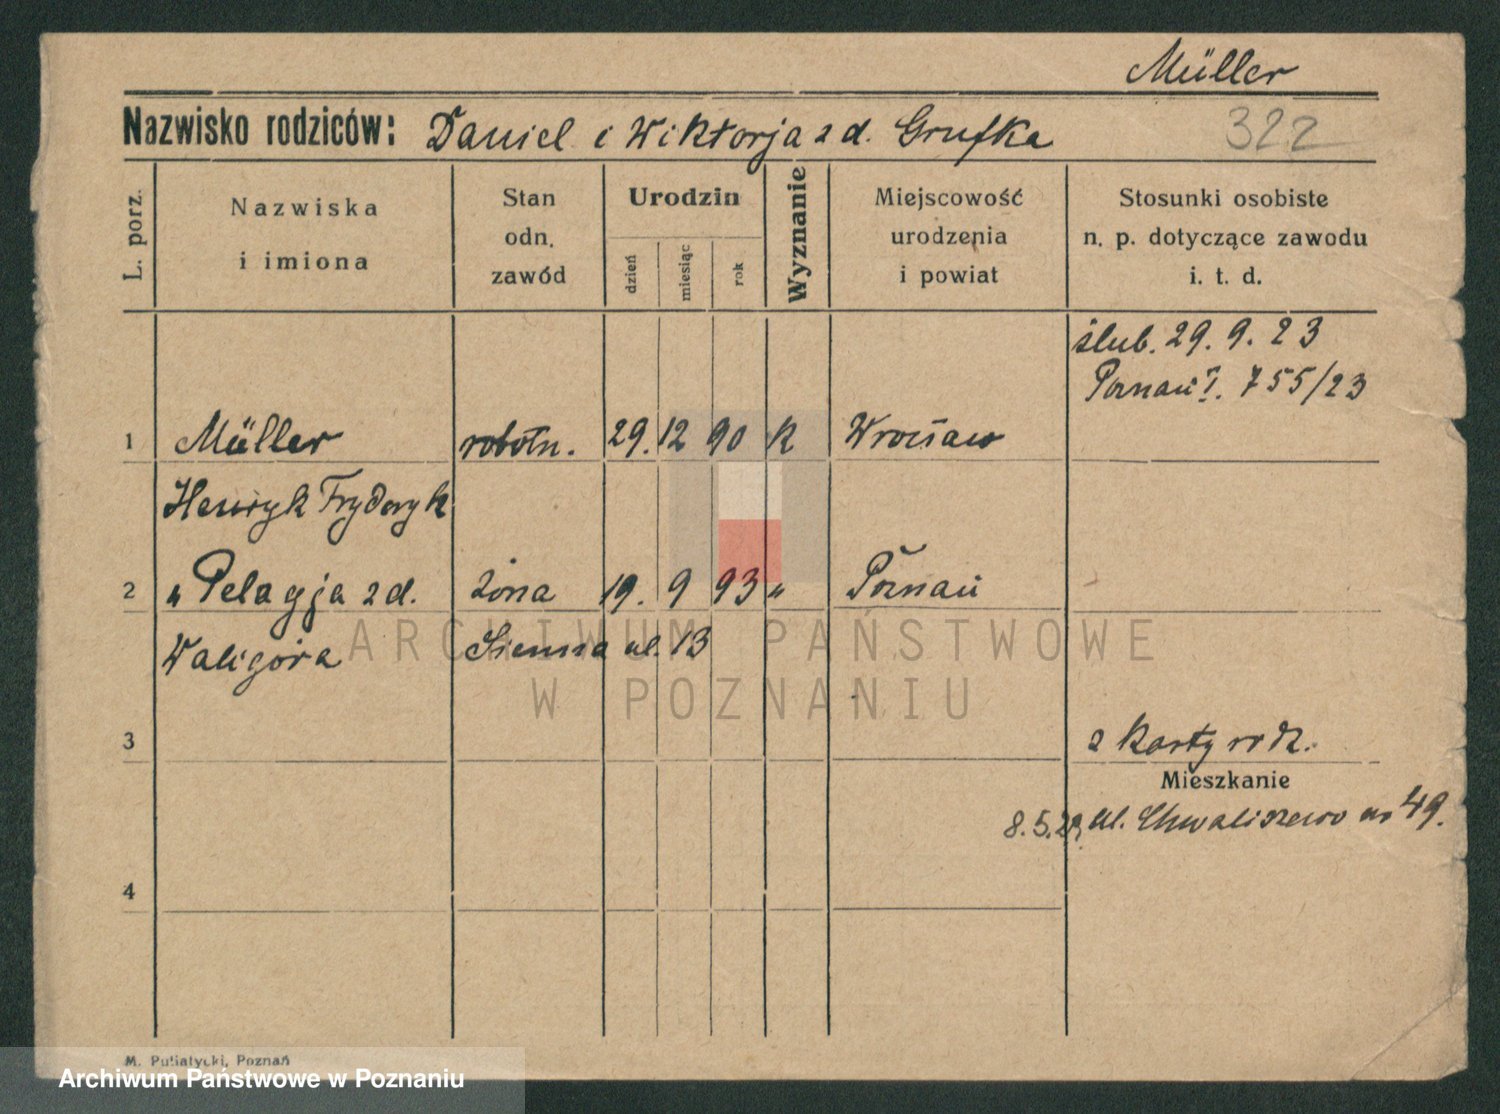 Müller
Nazwisko rodziców: Daniel i Wiktorja z d. Grufka
322
L. porz.
Nazwiska
i imiona
Stan
odn.
zawód
Urodzin
dzień
miesiąc
rok
Wyznanie
Miejscowość
urodzenia
i powiat
Stosunki osobiste
n. p. dotyczące zawodu
i. t. d.
ślub. 29. 9. 23
Poznań I. 755/23
1 Müller robotn. 29. 12 90 k Wrocław
Henryk Fryderyk
2 " Pelagja z d. żona 19. 9 93 " Poznań
Waligóra Sienna ul. 13
ARCHIWUM PAŃSTWOWE
W POZNANIU
3 z karty rodz.
Mieszkanie
8. 5. 29. ul. Chwaliszewo nr 49.
4
M. Putiatycki, Poznań
Archiwum Państwowe w Poznaniu